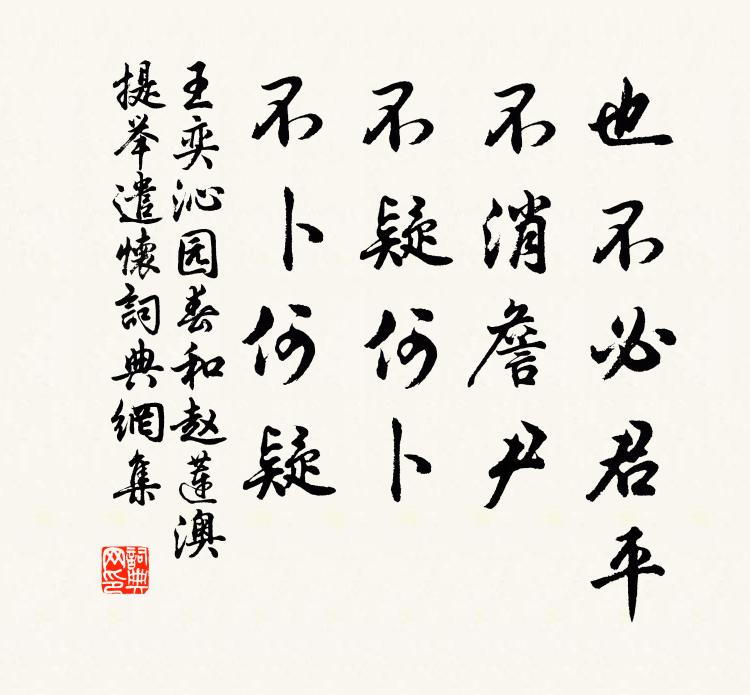 也不必君平
不消詹尹
不疑何卜
不卜何疑
王奕沁园春和赵莲澳
提举遣懷詞典網集
詞典网印